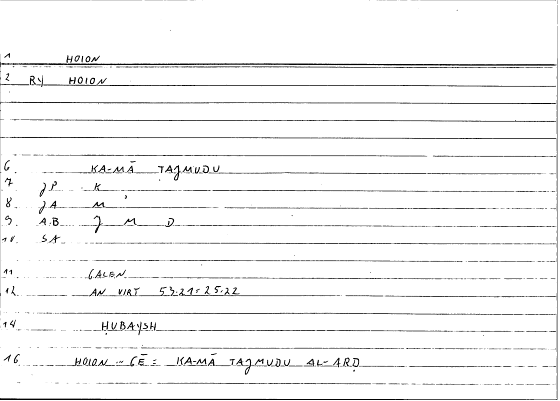 1 HOION
2 RY HOION
6 KA-MĀ TAJMUDU
7 JP K
8 JA M '
9. A.B J M D
10. SA
11 GALEN
12 AN VIRT 53.21 = 25.22
14 ḤUBAYSH
16 HOION - GĒ = KA-MĀ TAJMUDU AL-ARḌ